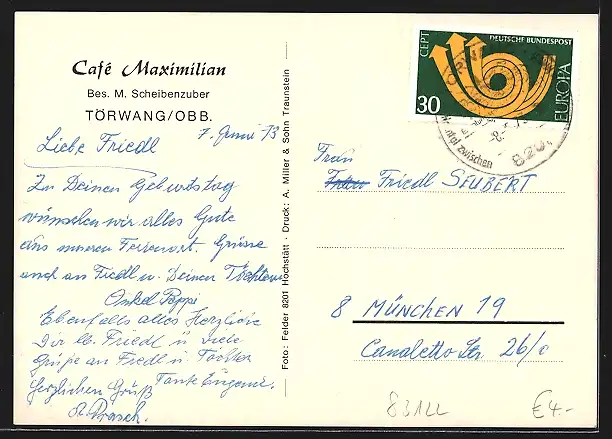 Café Maximilian
Bes. M. Scheibenzuber
TÖRWANG/OBB.
7. Juni 73
Liebe Friedl
Zu Deinen Geburtstag
wünschen wir alles Gute
aus unseren Ferienort. Grüsse
auch an Fredl u. Deinen Töchtern
Onkel Peppi
Ebenfalls alles Herzliche
Dir lb. Friedl u. viele
Grüße an Fredl u. Töchter
Herzlichen Gruß Tante Eugenie.
Foto: Felder 8201 Höchstätt · Druck: A. Miller & Sohn Traunstein
CEPT
DEUTSCHE BUNDESPOST
EUROPA
30
zwischen
820
Frau
Friedl SEUBERT
8 MÜNCHEN 19
Canaletto Str. 26/0
83122
€4.-